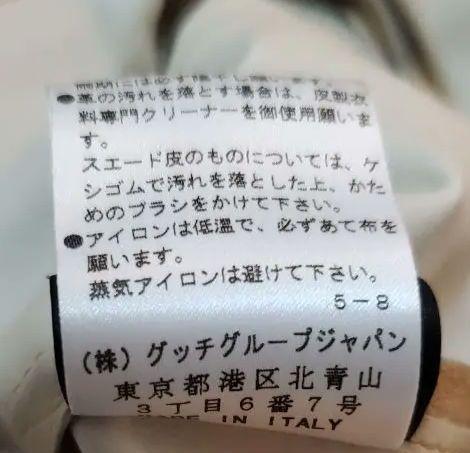 ●革の汚れを落とす場合は、皮製衣
料専門クリーナーを御使用願いま
す。
スエード皮のものについては、ケ
シゴムで汚れを落とした上、かた
めのブラシをかけて下さい。
●アイロンは低温で、必ずあて布を
願います。
蒸気アイロンは避けて下さい。
5-8
(株)グッチグループジャパン
東京都港区北青山
3丁目6番7号
MADE IN ITALY